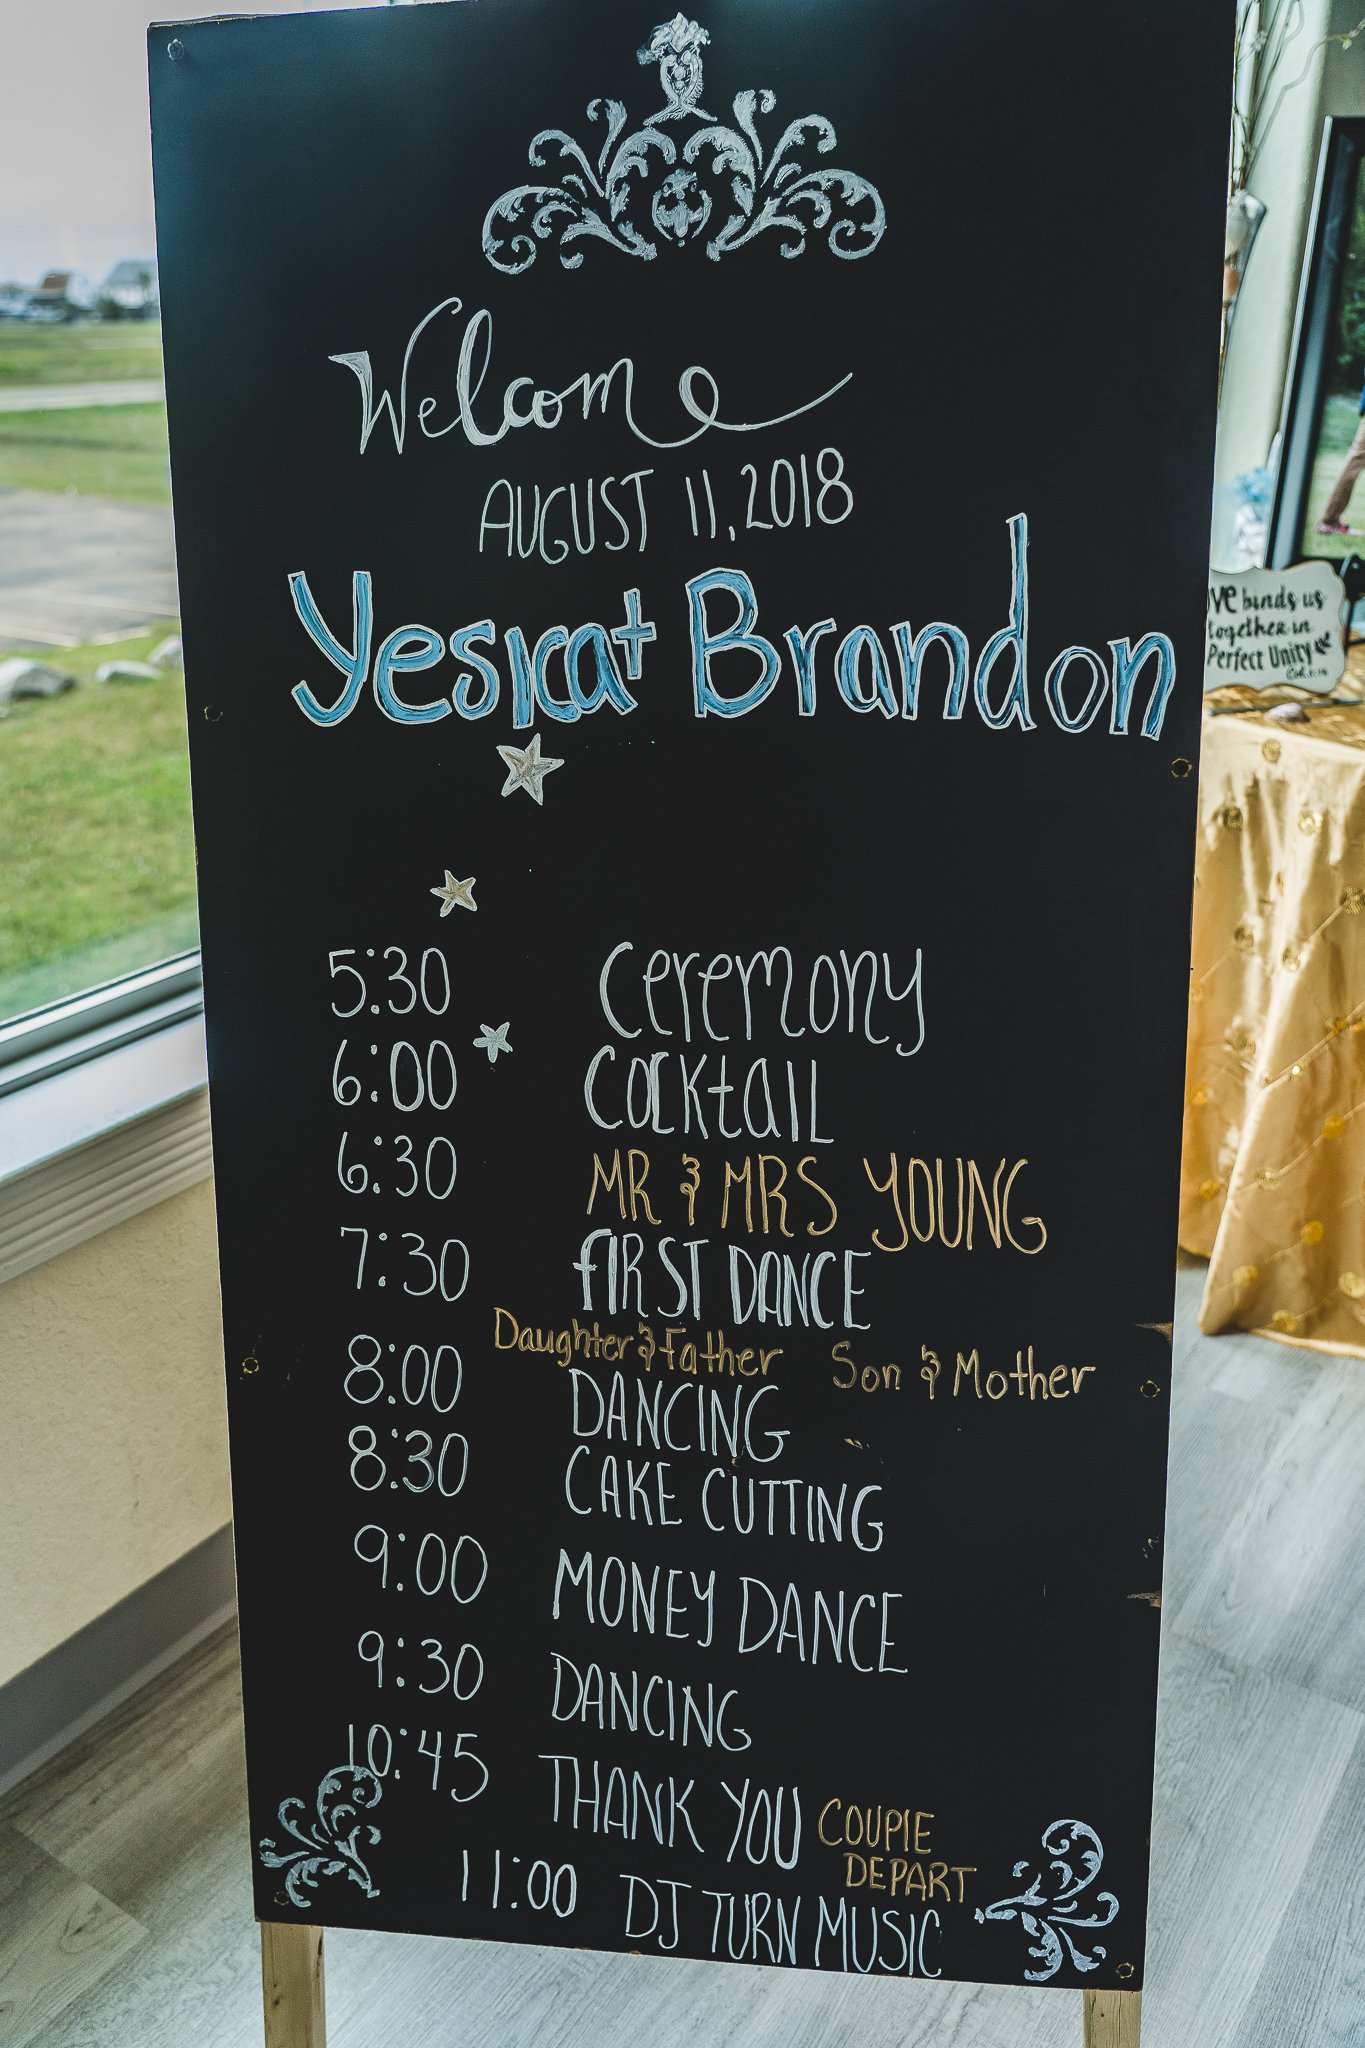 Welcome
AUGUST 11, 2018
Yesica + Brandon
5:30 Ceremony
6:00 Cocktail
6:30 MR & MRS YOUNG
7:30 FIRST DANCE
Daughter & Father Son & Mother
8:00 DANCING
8:30 CAKE CUTTING
9:00 MONEY DANCE
9:30 DANCING
10:45 THANK YOU COUPLE
DEPART
11:00 DJ TURN MUSIC
ve binds us
together in
Perfect Unity